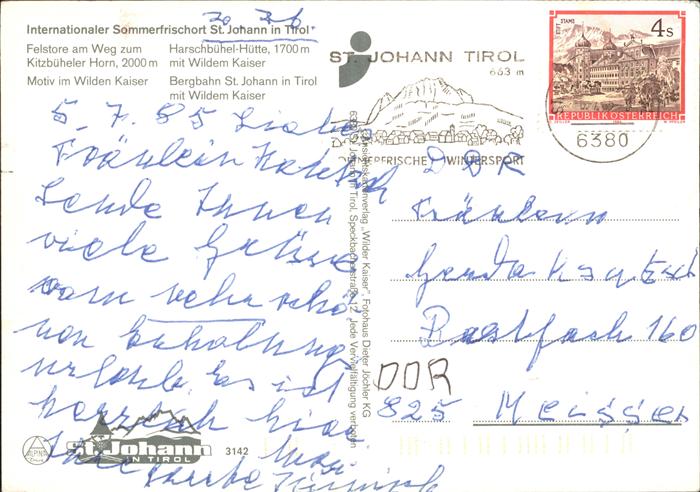 Internationaler Sommerfrischort St. Johann in Tirol
Felstore am Weg zum
Kitzbüheler Horn, 2000 m
Harschbühel-Hütte, 1700 m
mit Wildem Kaiser
Motiv im Wilden Kaiser
Bergbahn St. Johann in Tirol
mit Wildem Kaiser
5. 7. 85 Liebes
Fräulein
Sende Ihnen
viele Grüsse
vom sehr schö
nen Erholungs
urlaub. Es ist
herrlich hier
St. Johann
IN TIROL
3142
ALPINA
Ansichtskartenverlag „Wilder Kaiser“, Fotohaus Dieter Jöchler KG
6380 St. Johann in Tirol, Speckbacherstraße 12, Jede Vervielfältigung verboten
ST. JOHANN TIROL
663 m
WINTERSPORT
6380
STIFT STAMS
4 S
REPUBLIK ÖSTERREICH
DDR
Fräulein
Gerda
Postfach 160
DDR
825 Meissen